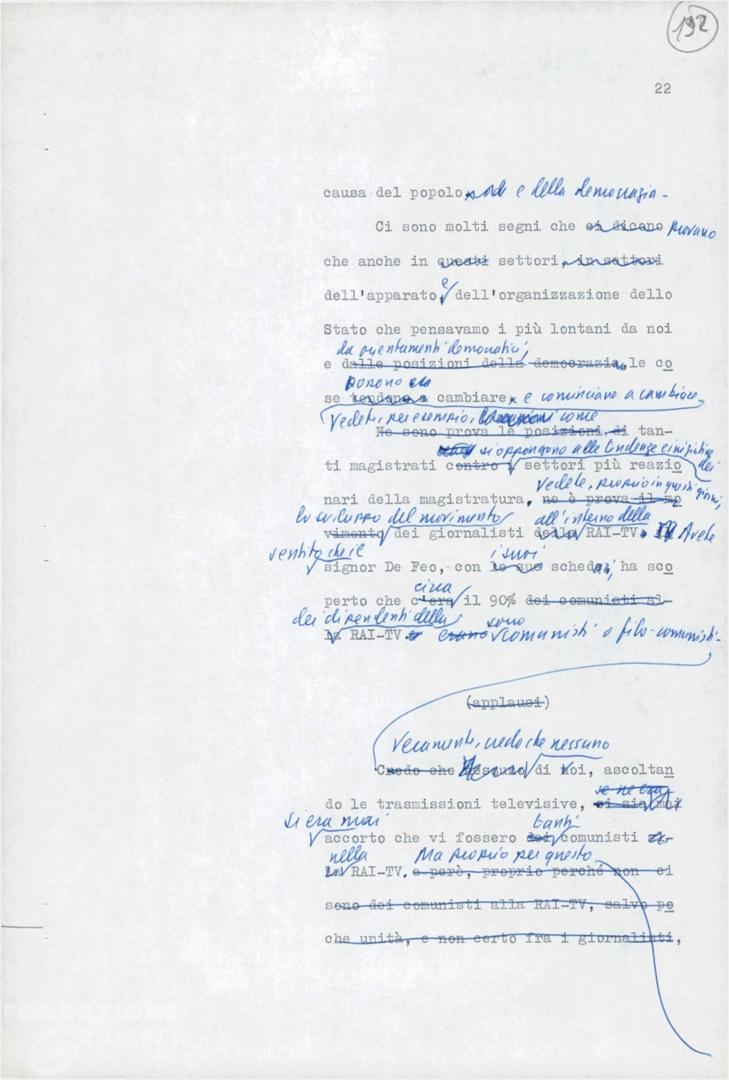 192
22
causa del popolo, e della democrazia.
Ci sono molti segni che ci dicono provano
che anche in questi settori, in settori
e
dell'apparato dell'organizzazione dello
Stato che pensavamo i più lontani da noi
da orientamenti democratici,
e dalle posizioni della democrazia, le co
possono
se tendono a cambiare, e cominciano a cambiare.
Vedete, per esempio, come
Ne sono prova le posizioni di tan-
si oppongono alle tendenze
ti magistrati contro i settori più reazio dei
vedete, proprio in questi giorni,
nari della magistratura, ne è prova il mo
lo sviluppo del movimento all'interno della
vimento dei giornalisti della RAI-TV. Avete
sentito che il i suoi
signor De Feo, con le sue schedari, ha sco
circa
perto che c'era il 90% dei comunisti al-
dei dipendenti della sono
la RAI-TV erano comunisti o filo-comunisti.
(applausi)
Veramente, credo che nessuno
Credo che nessuno di noi, ascoltan
se ne era
do le trasmissioni televisive, si sia mai
si era mai tanti
accorto che vi fossero dei comunisti
nella Ma proprio per questo
la RAI-TV. e però, proprio perché non ci
sono dei comunisti alla RAI-TV, salvo po
che unità, e non certo fra i giornalisti,
FONDAZIONE
GRAMSCI